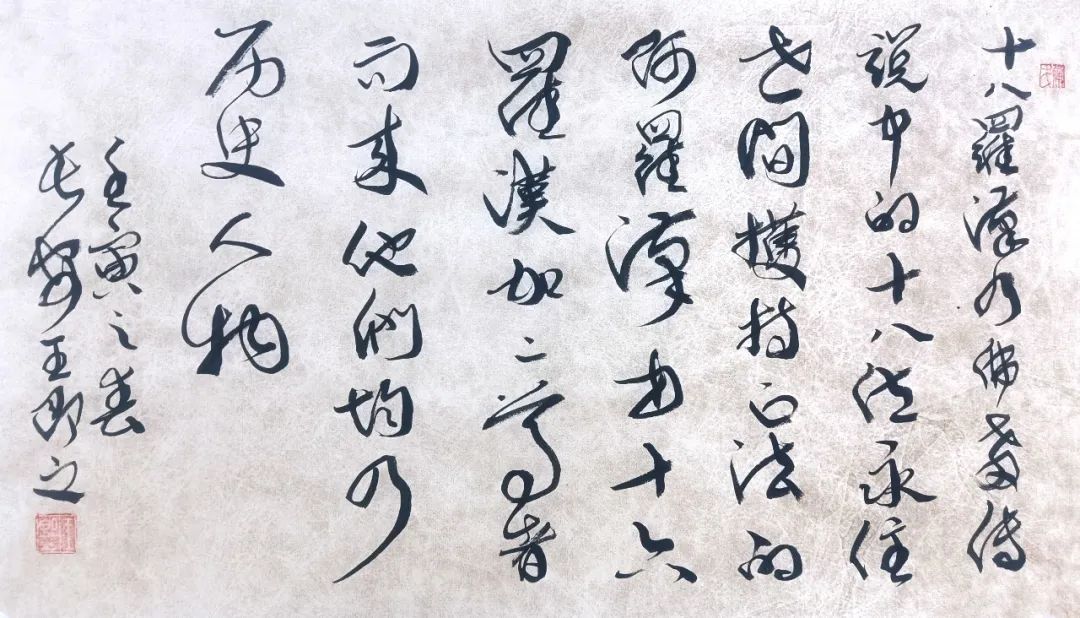 十八羅漢乃佛教传
説中的十八位永住
世间護持正法的
阿羅漢由十六
羅漢加二尊者
而来他們均乃
历史人物
壬寅之春
长 王郎之